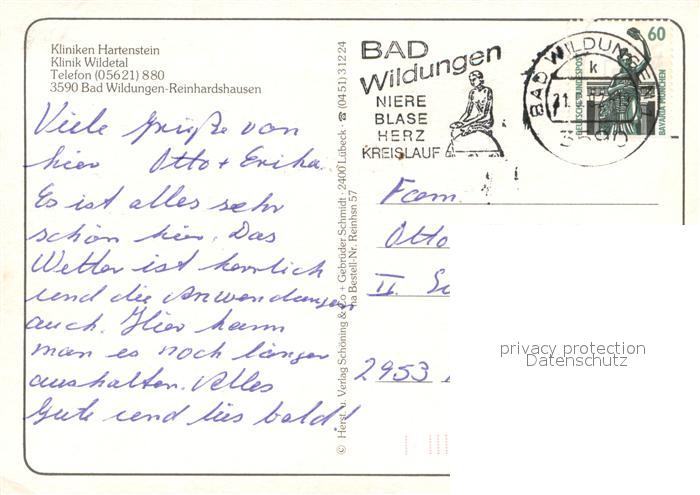 Kliniken Hartenstein
Klinik Wildetal
Telefon (05621) 880
3590 Bad Wildungen-Reinhardshausen
Viele Grüße von
hier Otto + Erika
Es ist alles sehr
schön hier. Das
Wetter ist herrlich
und die Anwendungen
auch. Hier kann
man es noch länger
aushalten. Alles
Gute und bis bald!
© Herst. u. Verlag Schöning & Co + Gebrüder Schmidt · 2400 Lübeck · ☎ (0451) 31224
Bestell-Nr. Reinhsn 57
BAD
Wildungen
NIERE
BLASE
HERZ
KREISLAUF
BAD WILDUNGEN
k
21.
3590
60
DEUTSCHE BUNDESPOST
BAVARIA MÜNCHEN
Fam.
Otto
II.
2953
privacy protection
Datenschutz